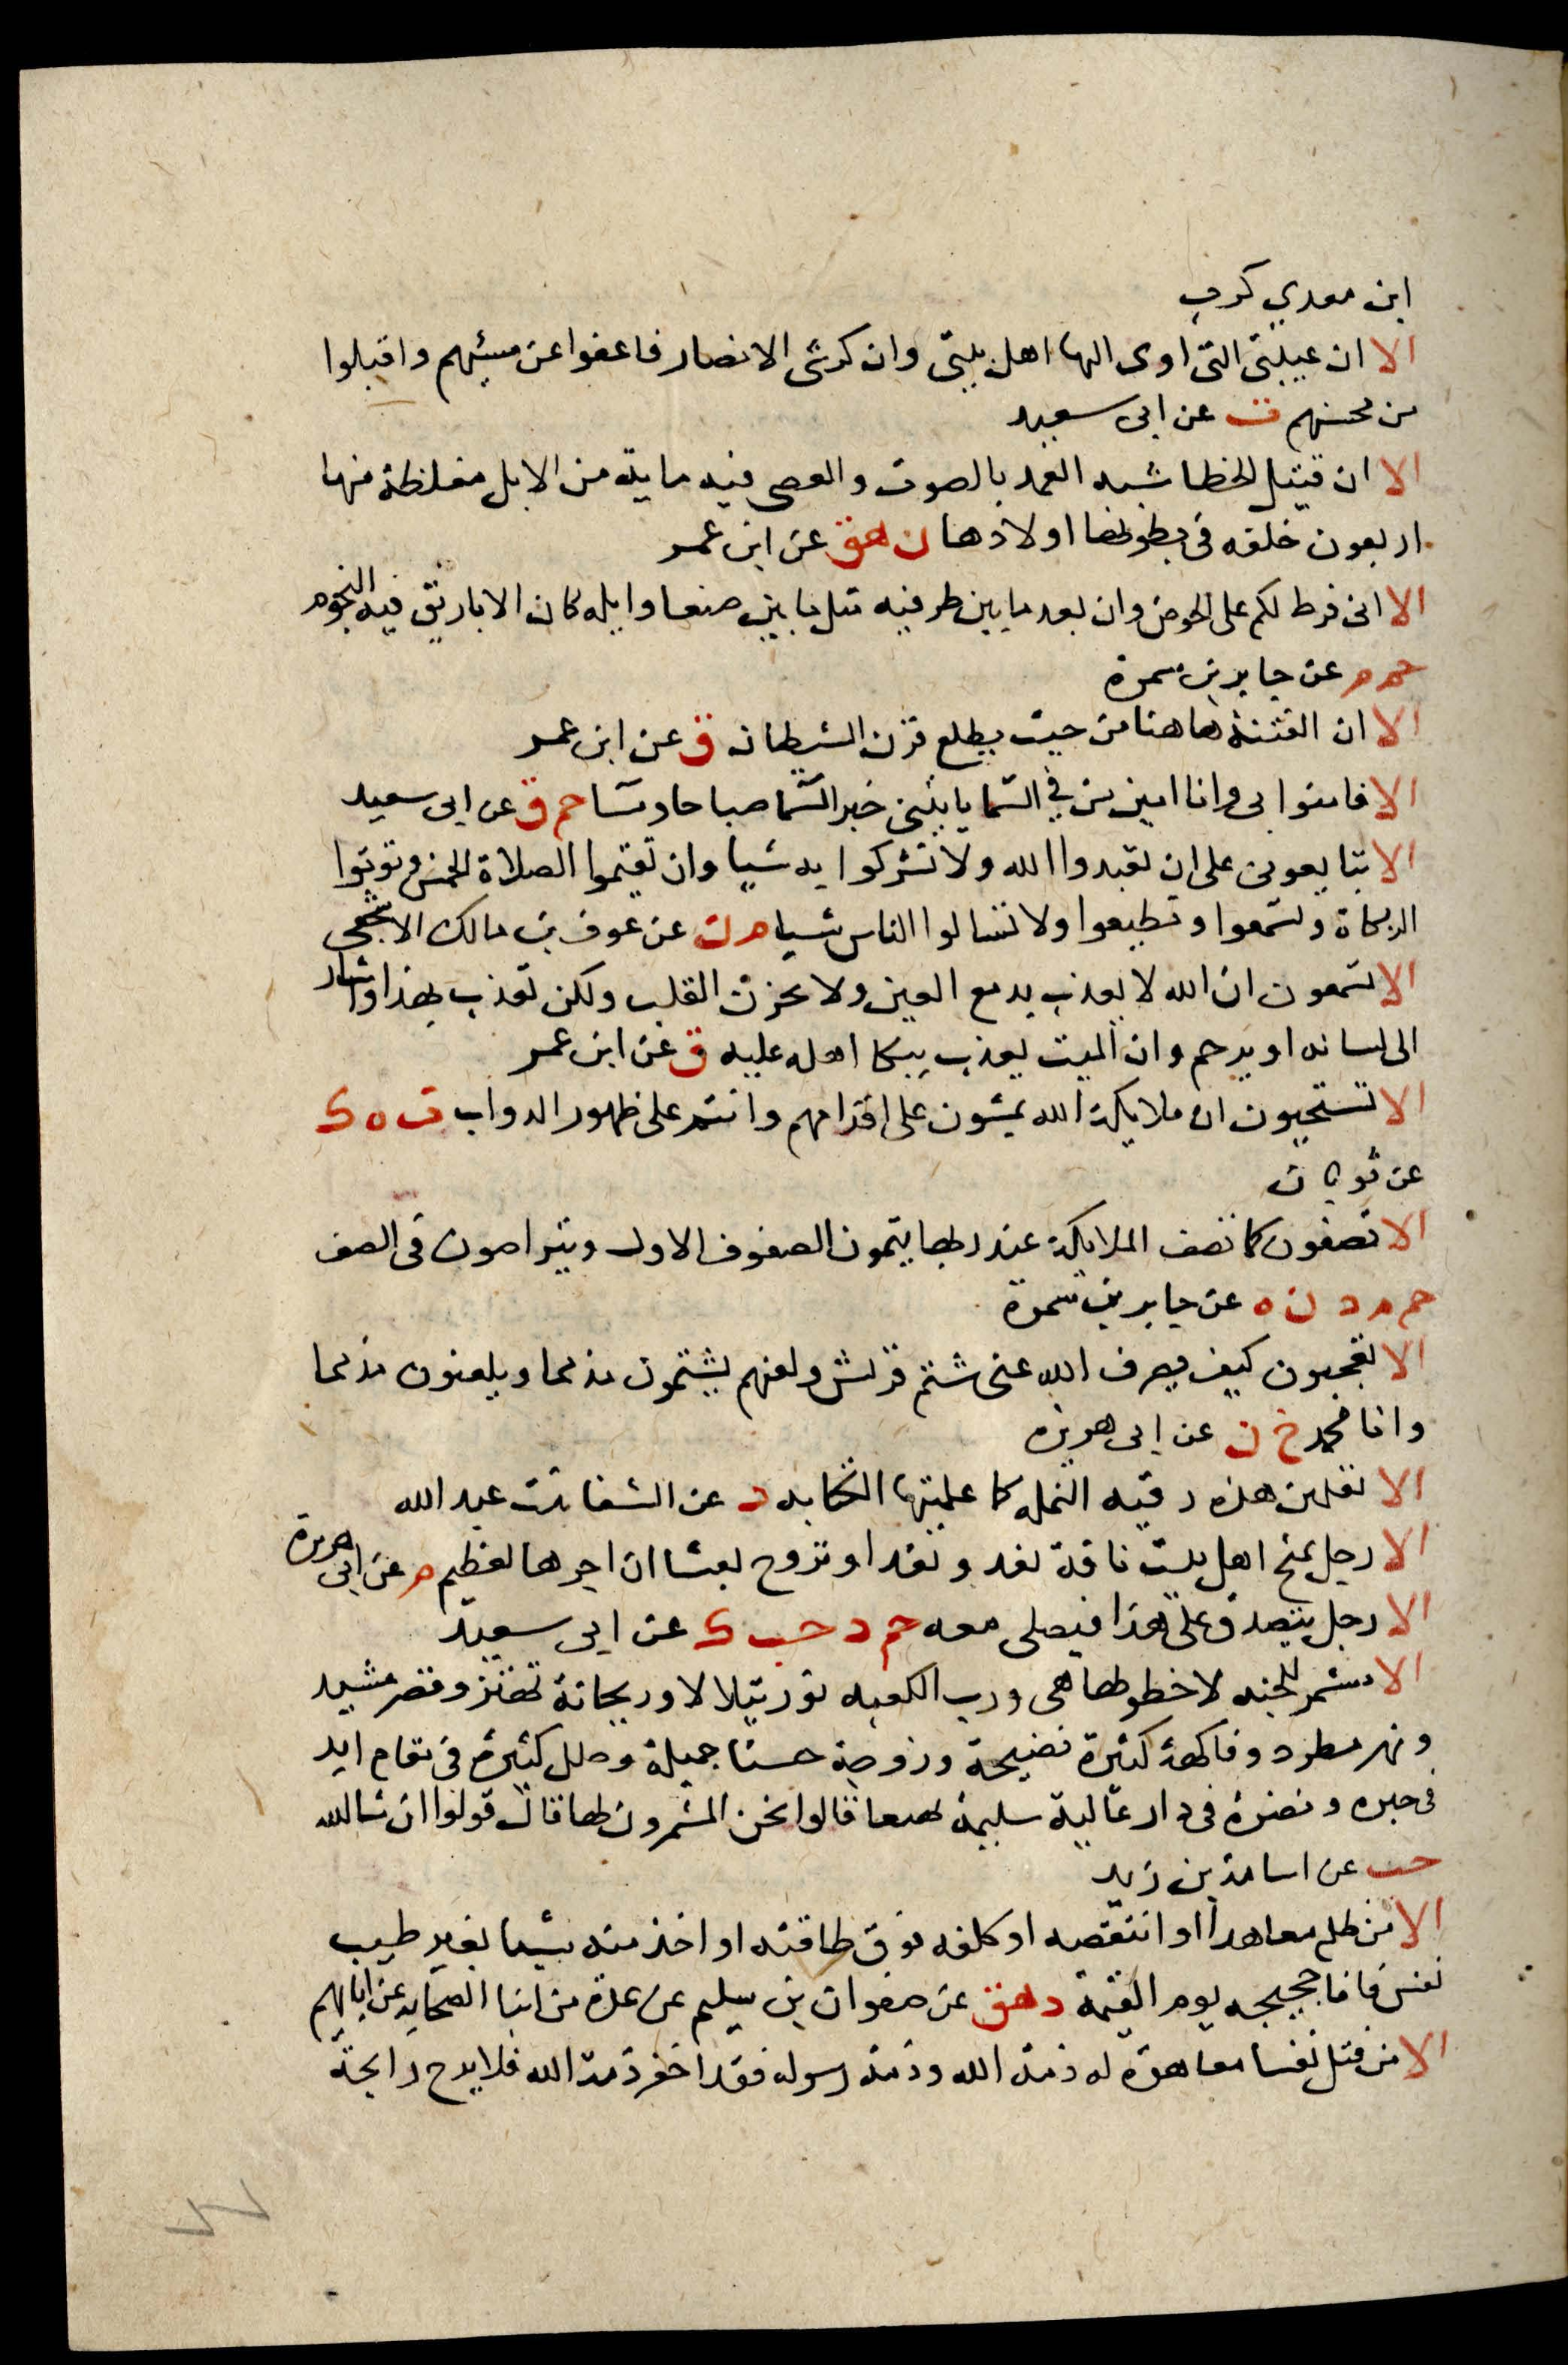 ابن معدي كرب
الا ان عيبتى التى اوى اليها اهل بيتى وان كرشى الانصار فاعفوا عن مسيئهم واقبلوا
من محسنهم ت عن ابى سعيد
الا ان قتيل الخطا شبه العمد بالصوت والعصى فيه ماية من الابل مغلظة منها
اربعون خلفه فى بطونها اولادها ن هق عن ابن عمر
الا انى فرط لكم على الحوض وان بعد ما بين طرفيه مثل ما بين صنعا وايله كان الاباريق فيه النجوم
حم م عن جابر بن سمرة
الا ان الفتنة هاهنا من حيث يطلع قرن الشيطان ق عن ابن عمر
الا فامنوا بى وانا امين من في السما ياتينى خبر السما صباحا ومسا حم ق عن ابى سعيد
الا تبايعونى على ان تعبدوا الله ولا تشركوا به شيا وان تقيموا الصلاة الخمس وتوتوا
الزكاة وتسمعوا وتطيعوا ولا تسالوا الناس شيا م ن عن عوف بن مالك الاشجعى
الا تسمعون ان الله لا يعذب بدمع العين ولا بحزن القلب ولكن تعذب بهذا واشار
الى لسانه او يرحم وان الميت يعذب ببكا اهله عليه ق عن ابن عمر
الا تستحيون ان ملايكة الله يمشون على اقدامهم وانتم على ظهور الدواب ت ه ك
عن ثوبان
الا تصفون كما تصف الملايكة عند ربها يتمون الصفوف الاول ويتراصون فى الصف
حم م د ن ه عن جابر بن سمرة
الا تعجبون كيف يصرف الله عنى شتم قريش ولعنهم يشتمون مذمما ويلعنون مذمما
وانا محمد خ ن عن ابى هريره
الا تعلمين هذه رقيه النمله كما علمتها الكتابه د عن الشفا بنت عبد الله
الا رجل يمنح اهل بيت ناقة تغدو بغدا وتروح بعشا ان اجرها لعظيم م عن ابى هريرة
الا رجل يتصدق على هذا فيصلى معه حم د حب ك عن ابى سعيد
الا مشمر للجنه لا خطر لها هى ورب الكعبه نور يتلالا وريحانة تهتز وقصر مشيد
ونهر مطرد وفاكهة كثيرة نضيجة وزوجة حسنا جميلة وحلل كثيرة فى مقام ابد
فى حبره ونضرة فى دار عالية سليمة بهية قالوا نحن المشمرون لها قال قولوا ان شا الله
حب عن اسامة بن زيد
الا من ظلم معاهدا او انتقصه او كلفه فوق طاقته او اخذ منه شيا بغير طيب
نفس فانا حجيجه يوم القيمة د هق عن صفوان بن سليم عن عدة من ابنا الصحابه عن ابايهم
الا من قتل نفسا معاهدة له ذمة الله وذمة رسوله فقد اخفر ذمة الله فلا يرح رايحة